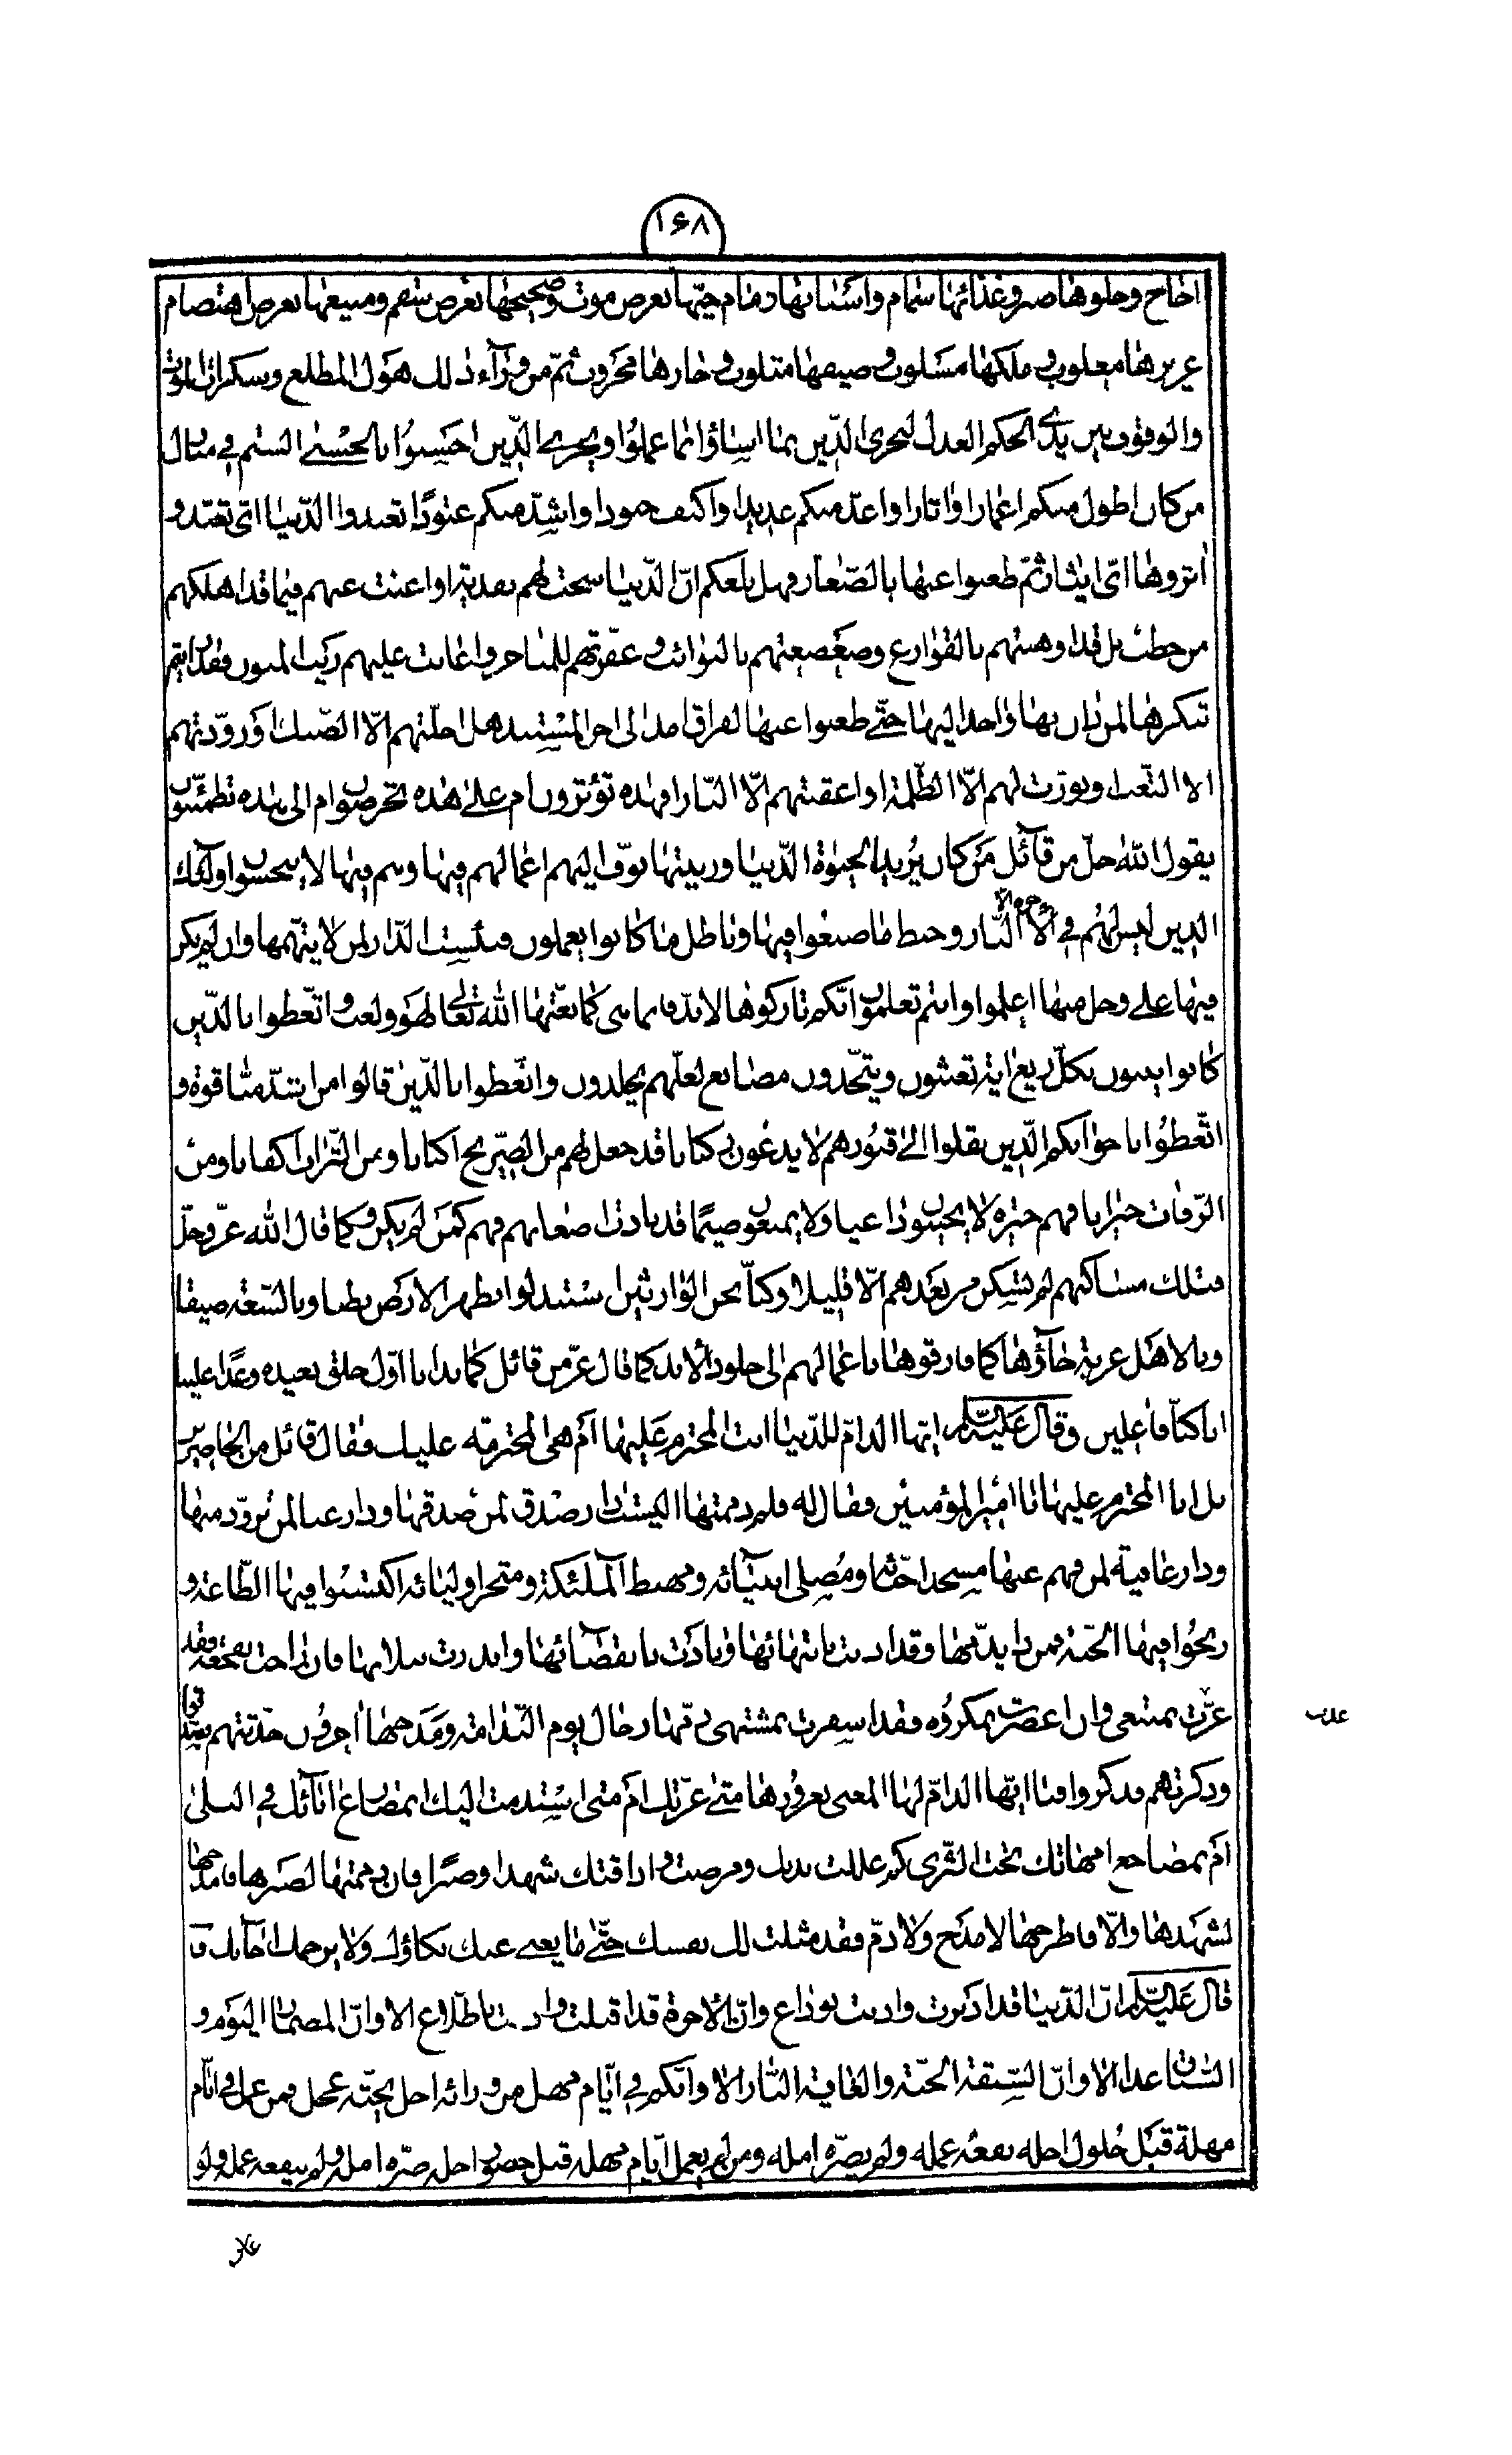 ١۶٨
اجاج وحلوها صبر وغذائها سمام واسبابها رمام حيّها بعرض موت وصحيحها بعرض سقم ومنيعها بعرض اهتضام
عزيزها مغلوب وملكها مسلوب وضيفها مثلوب وجارها محروب ثمّ من ورآء ذلك هول المطلع وسكرات الموت
والوقوف بين يدى الحكم العدل ليجزى الّذين اساؤا بما عملوا ويجزى الّذين احسنوا بالحسنى الستم فى منازل
من كان اطول منكم اعمارا واثارا واعدّ منكم عديدا واكثف جنودا واشدّ منكم عنودًا تعبدوا الدّنيا اىّ تعبّد و
اثروها اىّ ايثار ثمّ ظعنوا عنها بالصّغار فهل بلغكم انّ الدّنيا سخت لهم بفدية او اغنت عنهم فيما قد اهلكهم
من خطب بل قد اوهنتهم بالقوارع وضعضعتهم بالنوائب وعقرتهم للمناخر واعانت عليهم ريب المنون فقد رايتم
تنكرها لمن دان بها واخلد اليها حتّى ظعنوا عنها لفراق امد الى اخر المستند هل احلّتهم الّا الضّنك او زوّدتهم
الا التّعب او نورت لهم الّا الظّلمة او اعقبتهم الّا النّار افهذه تؤثرون ام على هذه تحرصون ام الى هذه تطمئنّون
يقول الله جلّ من قآئل من كان يريد الحيوة الدّنيا وزينتها نوفّ اليهم اعمالهم فيها وهم فيها لا يبخسون اولئك
الذين ليس لهم فى الاخرة الّا النّار وحبط ما صنعوا فيها وباطل ما كانوا يعملون فبئست الدّار لمن لا يتّهمها وان لم يكن
فيها على وجل منها اعلموا وانتم تعلمون انّكم تاركوها لا بدّ فانما هى كما نعتها الله تعالى لهو ولعب واتّعظوا بالّذين
كانوا يبنون بكلّ ريع اية تعبثون ويتّخذون مصانع لعلّهم يخلدون واتّعظوا بالّذين قالوا من اشدّ منّا قوة و
اتّعظوا باخوانكم الّذين نقلوا الى قبورهم لا يدعون ركبانا قد جعل لهم من الضّريح اكنانا ومن التّراب اكفانا ومن
الرّفات جيرانا فهم جيرة لا يجيبون داعيا ولا يمنعون ضيمًا قد بادت اضغانهم فهم كمن لم يكن وكما قال الله عزّ وجلّ
فتلك مساكنهم لم تسكن من بعدهم الّا قليلا وكنّا نحن الوارثين استبدلوا بظهر الارض بطنا وبالسّعة ضيقا
وبالاهل غربة جآؤها كما فارقوها باعمالهم الى خلود الابد كما قال عزّ من قائل كما بدانا اوّل خلق نعيده وعدًا علينا
انا كنّا فاعلين وقال عليه السلام ايّها الذامّ للدّنيا انت المجترم عليها ام هى المجترمة عليك فقال قائل من الحاضرين
بل انا المجترم عليها يا امير المؤمنين فقال له فلم ذممتها اليست دار صدق لمن صدقها ودار غنا لمن تزوّد منها
ودار عافية لمن فهم عنها مسجد احبّائه ومصلى انبيآئه ومهبط الملئكة ومتجر اوليائه اكتسبوا فيها الطّاعة و
ربحوا فيها الجنّة فمن ذا يذمّها وقد اذنت بانتهائها ونادت بانقضآئها وانذرت ببلائها فان راحت بفجعة فقد
غرّت بمبتغى وان اعصرت بمكروه فقد اسفرت بمشتهى ذمّها رجال يوم النّدامة ومدحها اخرون حدّثتهم فصدّقوا
وذكّرتهم فذكروا فيا ايّها الذامّ لها المغتر بغرورها متى غرّتك ام متى استذمت اليك ابمصارع ابآئك فى البلى
ام بمضاجع امهاتك تحت الثرى كم عللت بيديك ومرضت واذاقتك شهدا وصبرًا فان ذممتها لصبرها فامدحها
لشهدها والّا فاطرحها لا مدح ولا ذمّ فقد مثلت لك نفسك حتّى ما يغنى عنك بكاؤك ولا يرحمك احبآئك و
قال عليه السلام انّ الدّنيا قد ادبرت واذنت بوداع وانّ الاخرة قد اقبلت واذنت باطّلاع الا وانّ المضمار اليوم و
السّباق غدا الا وانّ السّبقة الجنّة والغاية النّار الا وانّكم فى ايّام مهل من ورائه اجل يحثّه عجل فمن عمل فى ايّام
مهلة قبل حلول اجله نفعه عمله ولم يضرّه امله ومن لم يعمل ايّام مهله قبل حضور اجله ضرّه امله ولم ينفعه عمله ولو